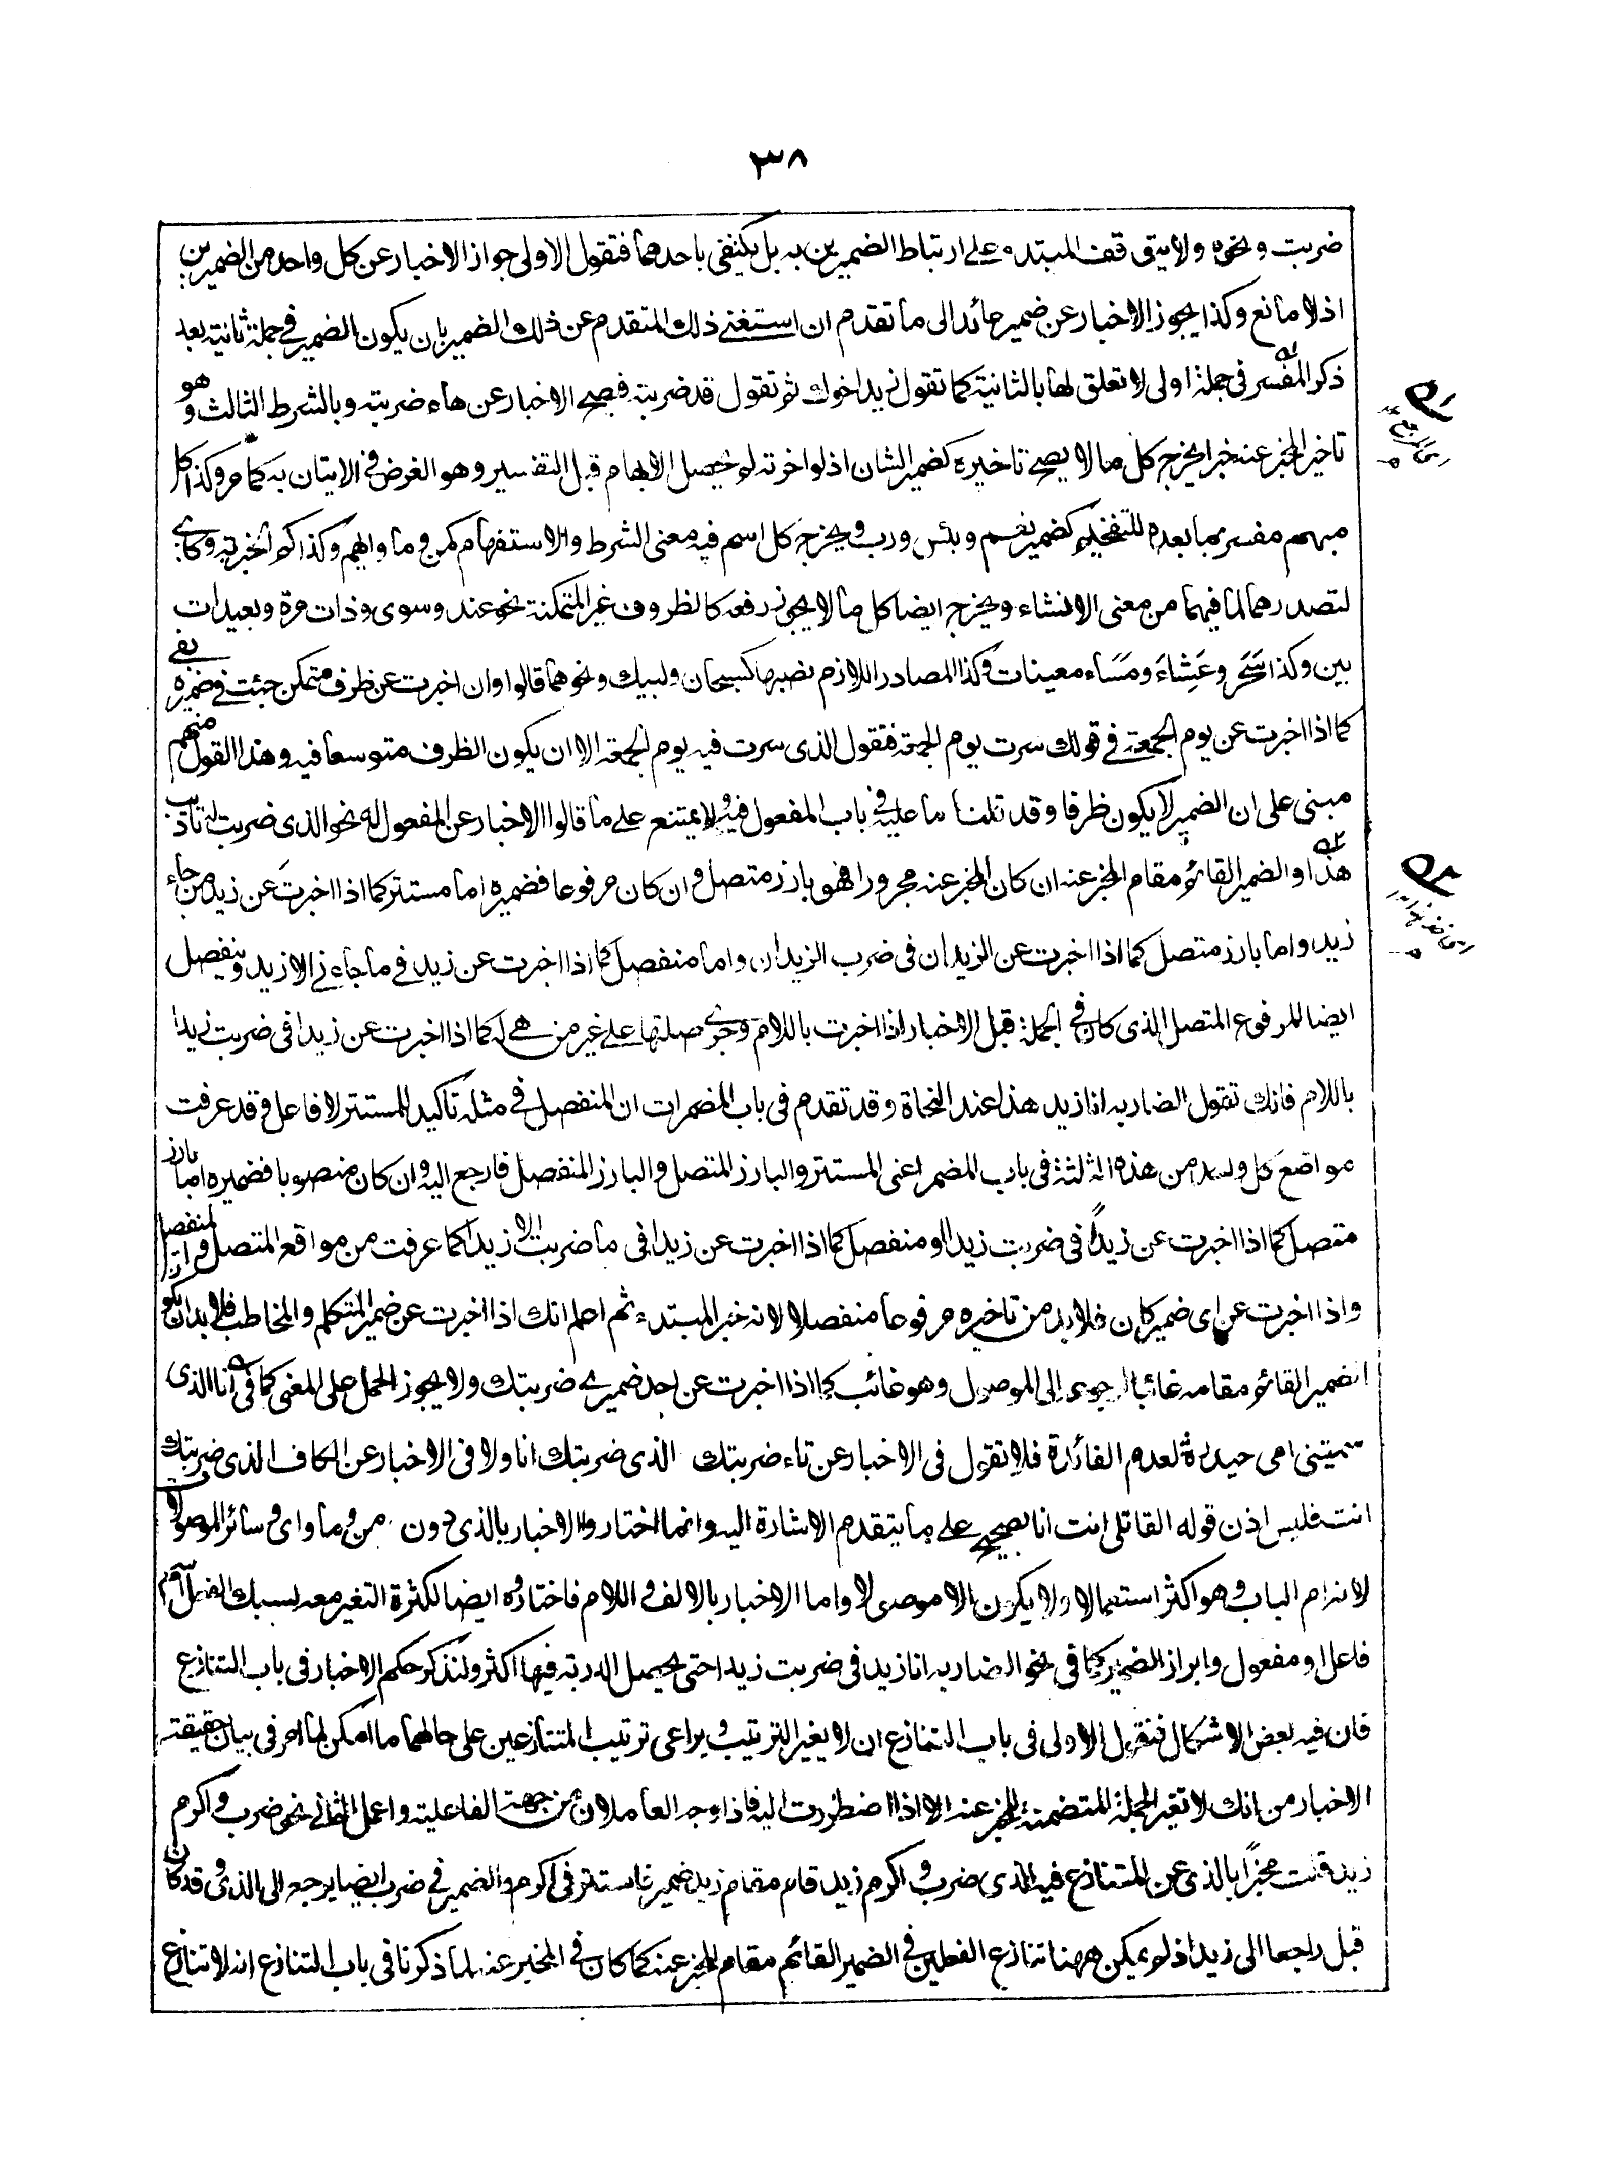 ٣٨
ضربت ونحوه ولا يتوقف المبتدء على ارتباط الضميرين به بل يكتفى باحدهما فتقول الاولى جواز الاخبار عن كل واحد من الضميرين
اذ لا مانع وكذا يجوز الاخبار عن ضمير عائد الى ما تقدم ان استغنى ذلك المتقدم عن ذلك الضمير بان يكون الضمير فى جملة ثانية بعد
ذكر المفسر فى جملة اولى لا تعلق لها بالثانية كما تقول زيد اخوك ثم تقول قد ضربته فيصح الاخبار عن هاء ضربته وبالشرط الثالث وهو
تاخير المخبر عنه خبرا يخرج كل ما لا يصح تاخيره كضمير الشان اذ لو اخرته لم يحصل الابهام قبل التفسير وهو الغرض فى الاتيان به كما مر وكذا كل
مبهم مفسر بما بعده للتفخيم كضمير نعم وبئس ورب ويخرج كل اسم فيه معنى الشرط والاستفهام كمن وما وايهم وكذا كم الخبرية وكاى
لتصدرهما لما فيهما من معنى الانشاء ويخرج ايضا كل ما لا يجوز رفعه كالظروف غير المتمكنة نحو عند وسوى وذات مرة وبعيدات
بين وكذا سحر وعشاء ومساء معينات وكذا المصادر اللازم نصبها كسبحان ولبيك ونحوهما قالوا وان اخبرت عن ظرف متمكن جئت فى ضميره بفى
كما اذا اخبرت عن يوم الجمعة فى قولك سرت يوم الجمعة فتقول الذى سرت فيه يوم الجمعة الا ان يكون الظرف متوسعا فيه وهذا القول منهم
مبنى على ان الضمير لا يكون ظرفا وقد تلنا ما عليه فى باب المفعول فيه ولا يمتنع على ما قالوا الاخبار عن المفعول له نحو الذى ضربت له تاديب
هذا والضمير القائم مقام المخبر عنه ان كان المخبر عنه مجرورا فهو بارز متصل وان كان مرفوعا فضميره اما مستتر كما اذا اخبرت عن زيد من جاء
زيد واما بارز متصل كما اذا اخبرت عن الزيدان فى ضرب الزيدان واما منفصل كما اذا اخبرت عن زيد فى ما جاءنى الا زيد وينفصل
ايضا للمرفوع المتصل الذى كان فى الجملة قبل الاخبار اذا اخبرت باللام وجرى صلتها على غير من هى له كما اذا اخبرت عن زيدا فى ضربت زيدا
باللام فانك تقول الضاربه انا زيد هذا عند النحاة وقد تقدم فى باب المضمرات ان المنفصل فى مثله تاكيد للمستتر لا فاعل وقد عرفت
مواضع كل واحد من هذه الثلثة فى باب المضمر اعنى المستتر والبارز المتصل والبارز المنفصل فارجع اليه وان كان منصوبا فضميره اما بارز
متصل كما اذا اخبرت عن زيدا فى ضربت زيدا او منفصل كما اذا اخبرت عن زيدا فى ما ضربت الا زيدا كما عرفت من مواقع المتصل والمنفصل
واذا اخبرت عن اى ضمير كان فلا بد من تاخيره مرفوعا منفصلا لانه خبر المبتدء ثم اعلم انك اذا اخبرت عن ضمير المتكلم والمخاطب فلا بد ان يكون
الضمير القائم مقامه غائبا لرجوعه الى الموصول وهو غائب كما اذا اخبرت عن احد ضميرى ضربتك ولا يجوز الحمل على المعنى كما فى انا الذى
سمتنى امى حيدرة لعدم الفائدة فلا تقول فى الاخبار عن تاء ضربتك الذى ضربتك انا ولا فى الاخبار عن الكاف الذى ضربتك
انت فليس اذن قوله القاتلى انت انا بصحيح على ما يتقدم الاشارة اليه وانما اختاروا الاخبار بالذى دون من وما واى وسائر الموصولات
لانه ام الباب وهو اكثر استعمالا ولا يكون الا موصولا واما الاخبار بالالف واللام فاختاروه ايضا لكثرة التغير معه بسبك الفعل اسم
فاعل او مفعول وابراز الضمير كما فى نحو الضاربه انا زيد فى ضربت زيدا حتى يحصل الدربة فيها اكثر ولنذكر حكم الاخبار فى باب التنازع
فان فيه بعض الاشكال فنقول الاولى فى باب التنازع ان لا يغير الترتيب ويراعى ترتيب المتنازعين على حالهما ما امكن لما مر فى بيان حقيقة
الاخبار من انك لا تغير الجملة المتضمنة للمخبر عنه الا اذا اضطررت اليه فاذا وجه العاملان من جهة الفاعلية واعمل الثانى نحو ضرب واكرم
زيد قلت مخبرا بالذى عن المتنازع فيه الذى ضرب واكرم زيد قام مقام زيد ضمير فاستتر فى اكرم والضمير فى ضرب ايضا يرجع الى الذى وقد كان
قبل راجعا الى زيد اذ لم يمكن ههنا تنازع الفعلين فى الضمير القائم مقام المخبر عنه كما كان فى المخبر عنه لما ذكرنا فى باب التنازع انه لا تنازع